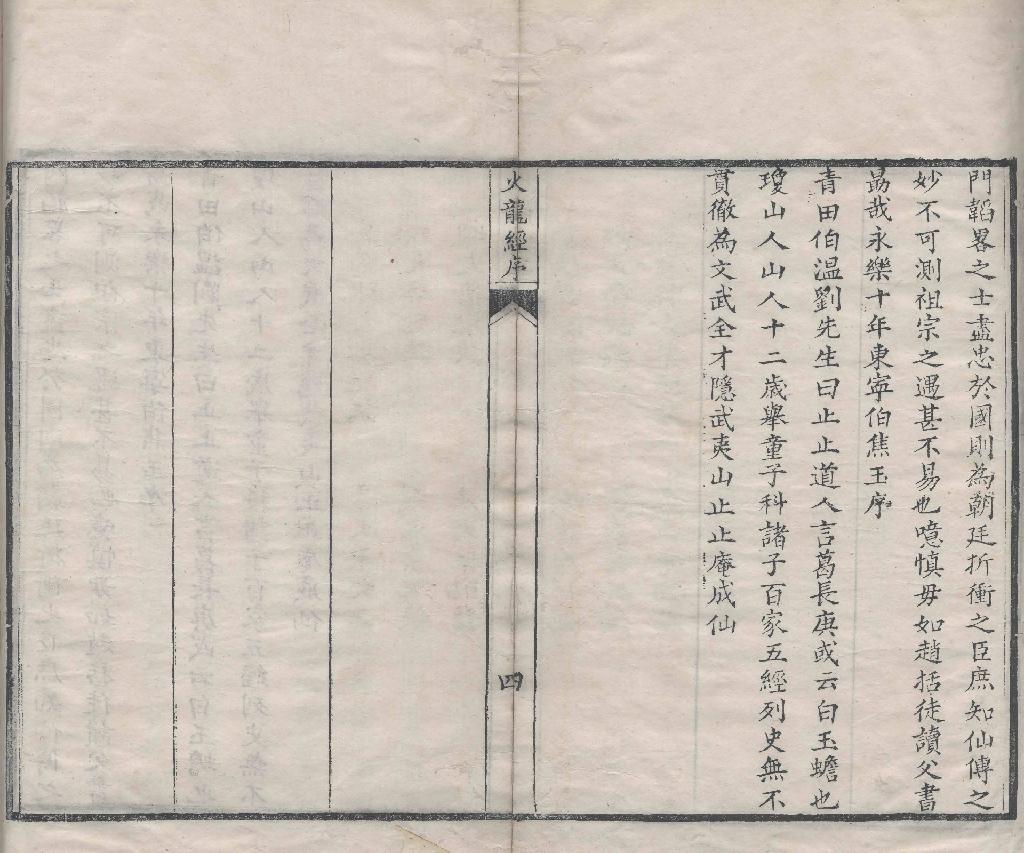 門韜畧之士盡忠於國則為朝廷折衝之臣庶知仙傳之
妙不可測祖宗之遇甚不易也噫慎毋如趙括徒讀父書
勗哉永樂十年東寧伯焦玉序
青田伯温劉先生曰止止道人言葛長庚或云白玉蟾也
瓊山人山人十二歲舉童子科諸子百家五經列史無不
貫徹為文武全才隱武夷山止止庵成仙
火龍經序
四